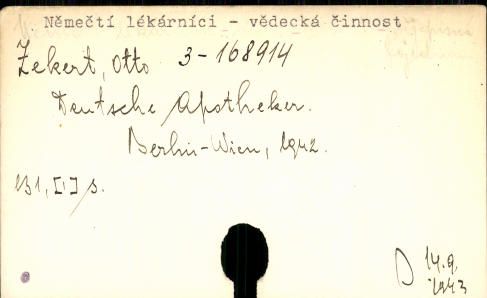 Němečtí lékárníci - vědecká činnost
Zekert, Otto 3-168914
Deutsche Apotheker.
Berlin-Wien, 1942.
131, [1] s.
D 14.9.
1943